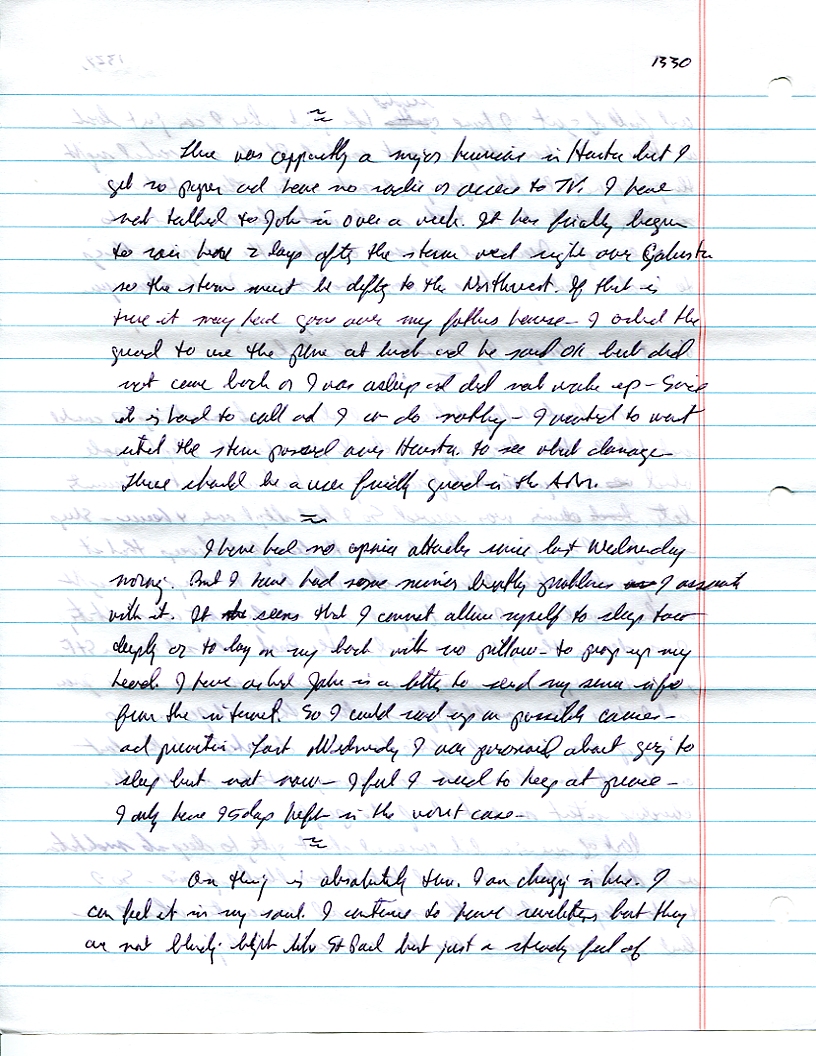 1330
≈
There was apparently a major hurricane in Houston but I
get no paper and have no radio or access to TV. I have
not talked to John in over a week. It has finally begun
to rain here 2 days after the storm went right over Galveston
so the storm must be drifting to the Northwest. If that is
true it may have gone over my fathers house - I asked the
guard to use the phone at lunch and he said OK but did
not come back or I was asleep and did not wake up - Since
it is hard to call and I can do nothing - I wanted to wait
until the storm passed over Houston. to see what damage
There should be a user friendly guard in the AM.
≈
I have had no apnea attacks since last Wednesday
morning. But I have had some minor breathing problems I associate
with it. It seems that I cannot allow myself to sleep too
deeply or to lay on my back with no pillow - to prop up my
head. I have asked John in a letter to send my some info
from the internet. So I could read up on possible causes -
and prevention. Last Wednesday I was paranoid about going to
sleep but not now - I feel I need to keep at peace -
I only have 95 days left in the worst case -
≈
One thing is absolutely true. I am changing in here. I
can feel it in my soul. I continue to have revelations but they
are not blinding light like St Paul but just a steady feel of